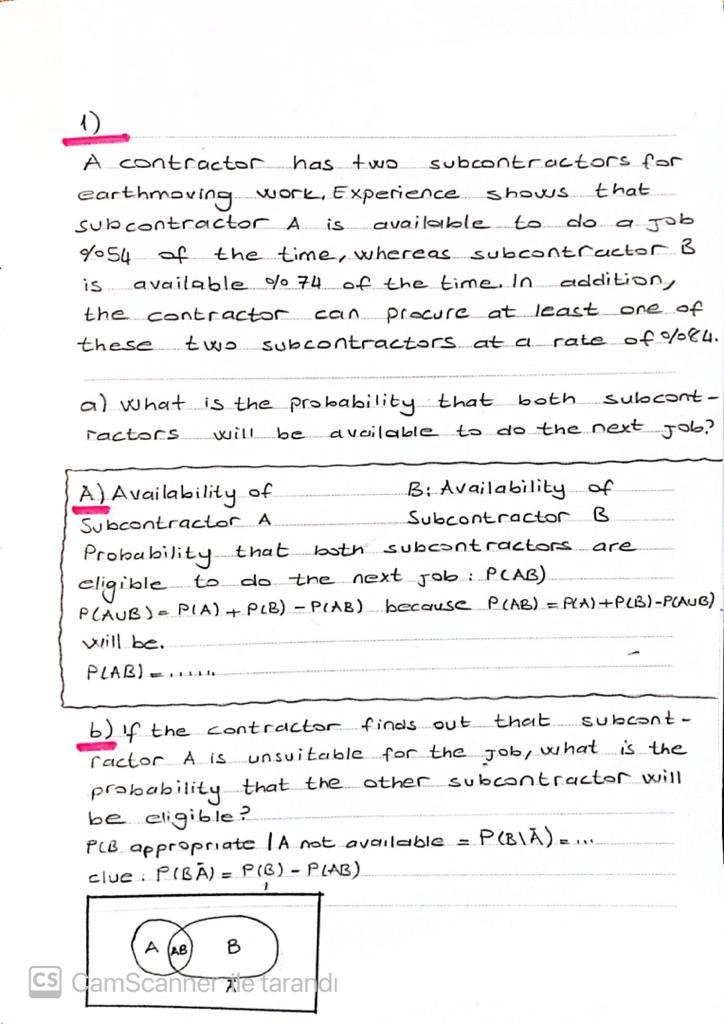 1)
A contractor has two subcontractors for
earthmoving work. Experience shows that
subcontractor A is available to do a job
%54 of the time, whereas subcontractor B
is available %74 of the time. In addition,
the contractor can procure at least one of
these two subcontractors at a rate of %84.
a) what is the probability that both subcont-
ractors will be available to do the next job?
A) Availability of B: Availability of
Subcontractor A Subcontractor B
Probability that both subcontractors are
eligible to do the next job: P(AB)
P(AUB) = P(A) + P(B) - P(AB) because P(AB) = P(A)+P(B)-P(AUB)
will be.
P(AB) = ......
b) if the contractor finds out that subcont-
ractor A is unsuitable for the job, what is the
probability that the other subcontractor will
be eligible?
P(B appropriate | A not available = P(B\Ā) = ...
clue: P(BĀ) = P(B) - P(AB)
A AB B
Ā
CS CamScanner ile tarandı